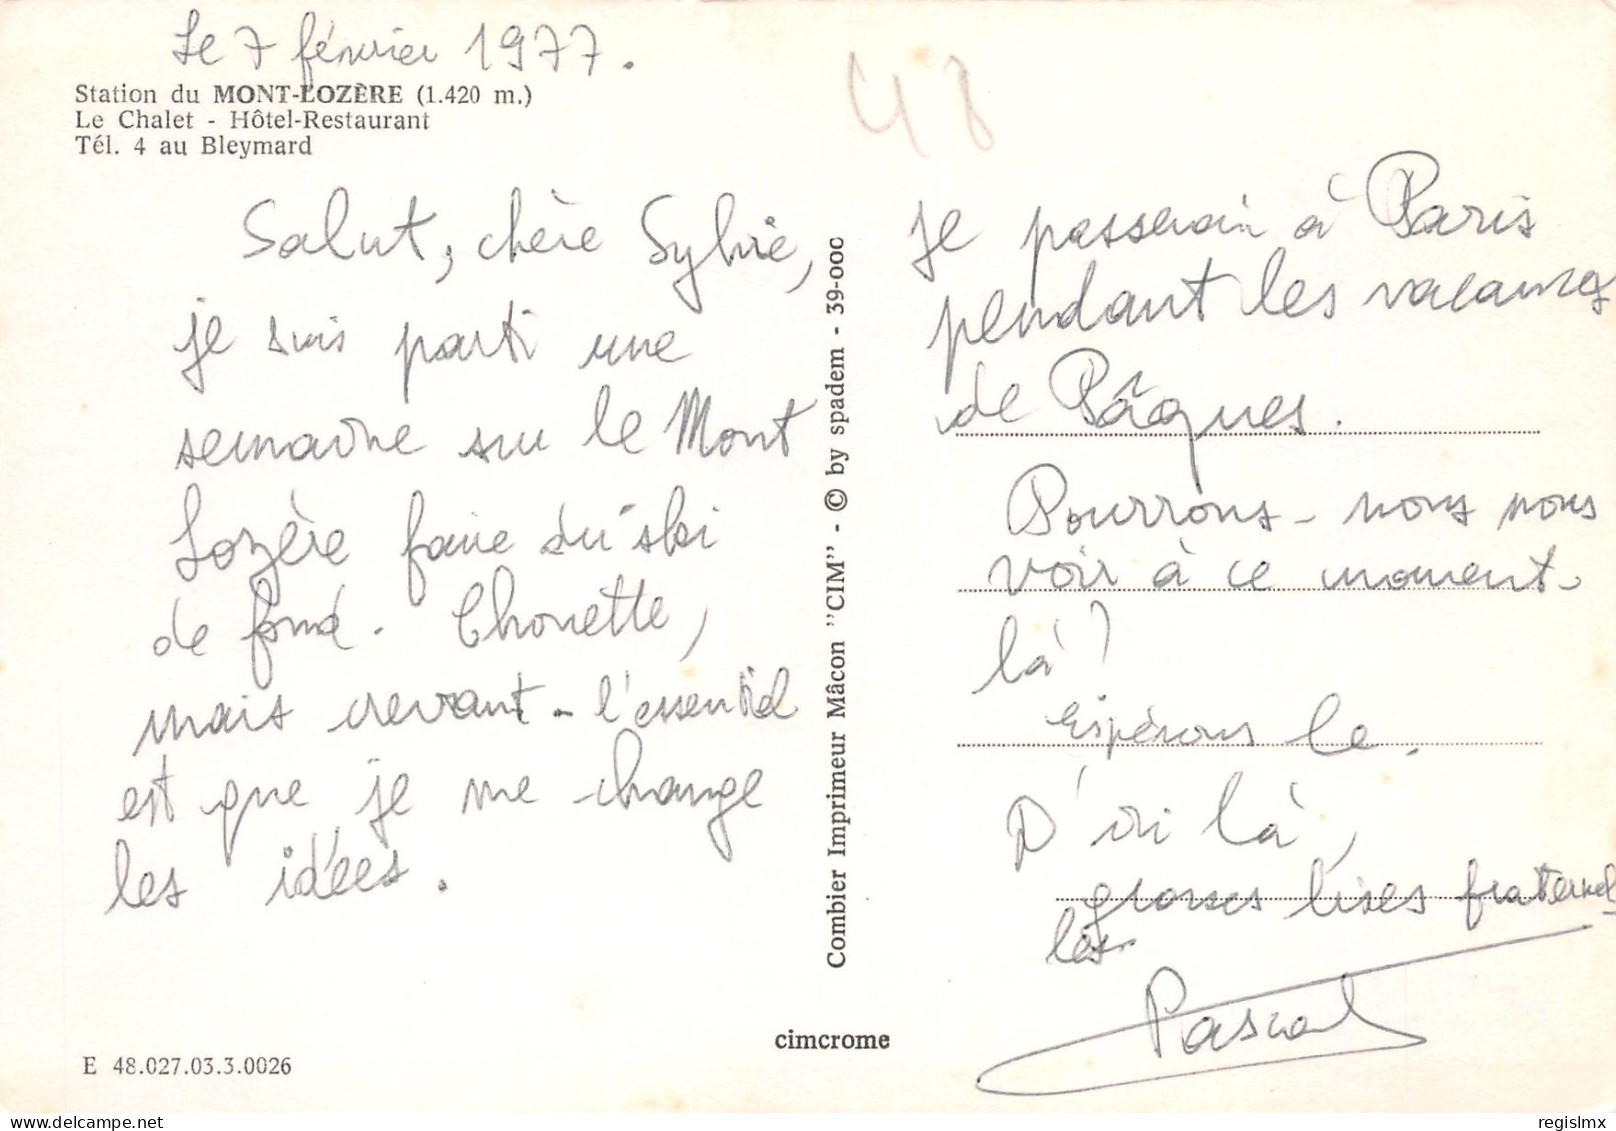 Le 7 février 1977.
Station du MONT-LOZÈRE (1.420 m.)
Le Chalet - Hôtel-Restaurant
Tél. 4 au Bleymard
48
Salut, chère Sylvie,
je suis parti une
semaine sur le Mont
Lozère faire du ski
de fond. Chouette,
mais crevant - l'essentiel
est que je me change
les idées.
Combier Imprimeur Mâcon "CIM" - © by spadem - 39-000
je passerai à Paris
pendant les vacances
de Pâques.
Pourrons-nous nous
voir à ce moment-
là ?
Espérons le.
D'ici là,
grosses bises fraternel
les.
Pascal
cimcrome
E 48.027.03.3.0026
regislmx